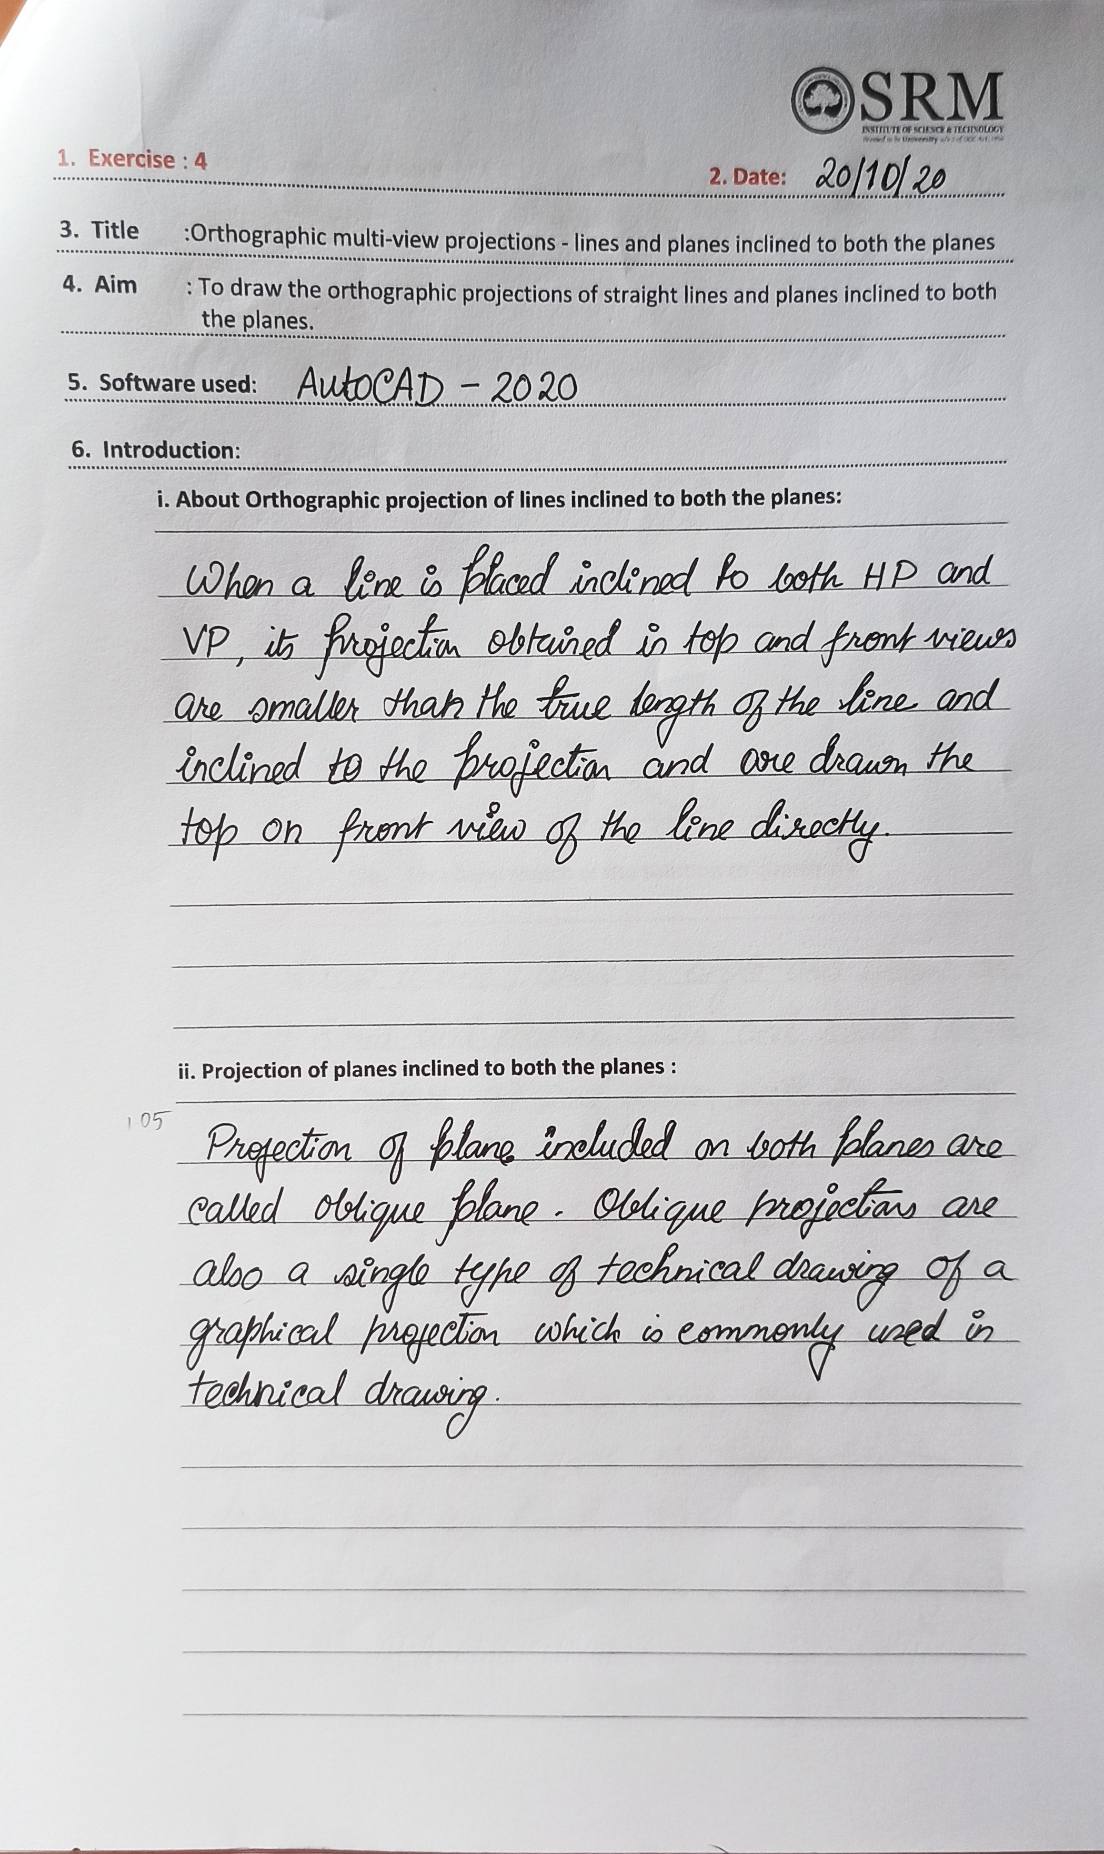 SRM
INSTITUTE OF SCIENCE & TECHNOLOGY
1. Exercise : 4
2. Date: 20/10/20
3. Title :Orthographic multi-view projections - lines and planes inclined to both the planes
4. Aim : To draw the orthographic projections of straight lines and planes inclined to both
the planes.
5. Software used: AutoCAD - 2020
6. Introduction:
i. About Orthographic projection of lines inclined to both the planes:
When a line is placed inclined to both HP and
VP, its projection obtained in top and front views
are smaller than the true length of the line and
inclined to the projection and are drawn the
top on front view of the line directly.
ii. Projection of planes inclined to both the planes :
Projection of plane included on both planes are
called oblique plane. Oblique projections are
also a single type of technical drawing of a
graphical projection which is commonly used in
technical drawing.